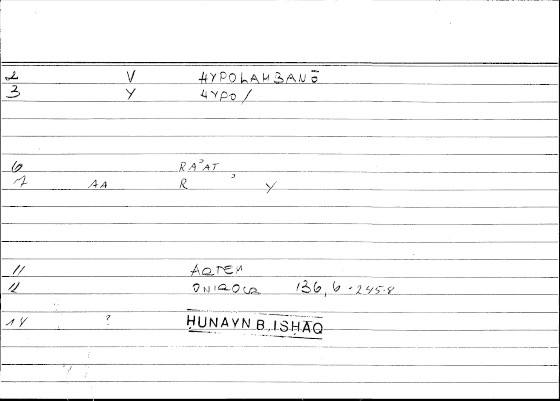 2 V HYPOLAMBANŌ
3 Y HYPO/
6 RAʾAT
7 AA R ʾ Y
11 ARTEM
12 ONIROCR 136,6 - 245.8
14 ? HUNAYN B. ISHAQ